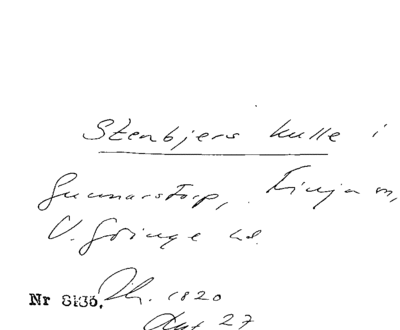 Stenbjers kulle i
Gunnarstorp, Finja sn,
V. Göinge hd.
Nr 8136. Th. 1820
27